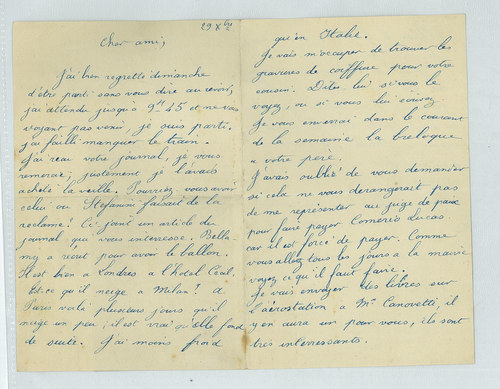 29 Xbre
Cher ami,
J'ai bien regretté dimanche
d'être parti sans vous dire au revoir,
j'ai attendu jusqu'à 9h 45 et ne vous
voyant pas venir, je suis parti.
j'ai failli manquer le train.
J'ai reçu votre journal, je vous
remercie, justement je l'avais
acheté la veille. Pourriez vous avoir
celui où Stefanini faisait de la
reclame? Ci joint un article du
journal qui vous interesse. Bella-
my a ecrit pour avoir le ballon.
Il est bien a Londres a l'hotel Cecil.
Est ce qu'il neige a Milan? A
Paris voilà plusieurs jours qu'il
neige un peu, il est vrai qu'elle fond
de suite. J'ai moins froid
qu'en Italie.
Je vais m'occuper de trouver les
gravures de coiffure pour votre
cousin. Dites lui si vous le
voyez, ou si vous lui ecrivez.
Je vous enverrai dans le courant
de la semaine la breloque
a votre père.
J'avais oublié de vous demander
si cela ne vous derangerait pas
de me représenter au juge de paix
pour faire payer
car il est forcé de payer. Comme
vous allez tous les jours a la mairie
voyez ce qu'il faut faire.
Je vais envoyer des livres sur
l'aérostation a Mr Canovetti, il
y en aura un pour vous, ils sont
très interressants.